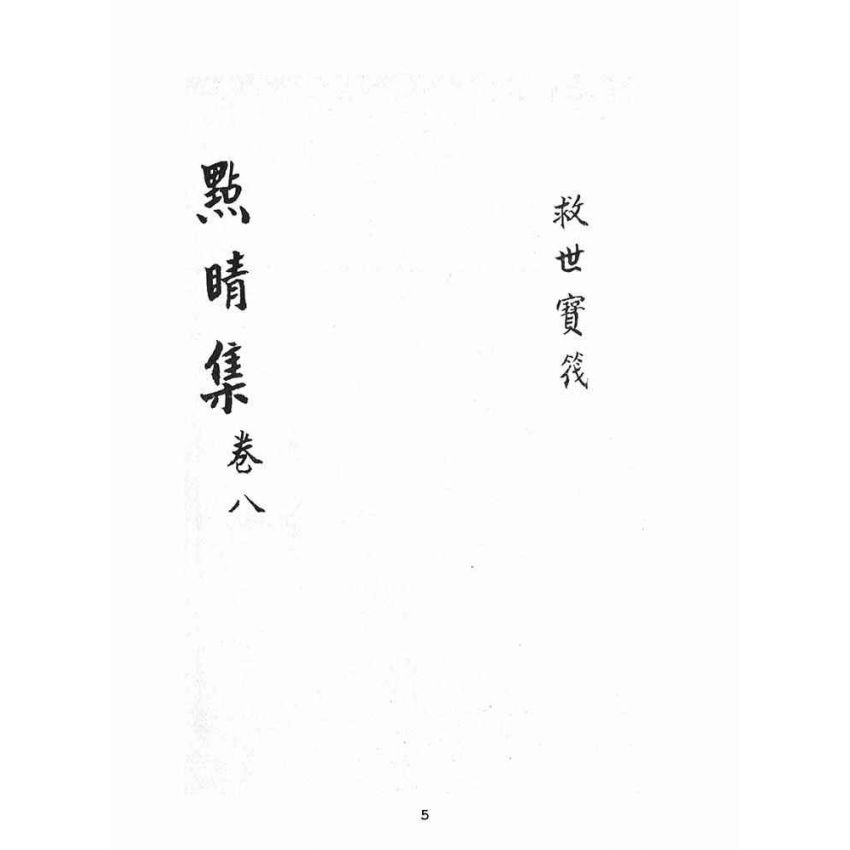 救世寶筏
點睛集卷八
5